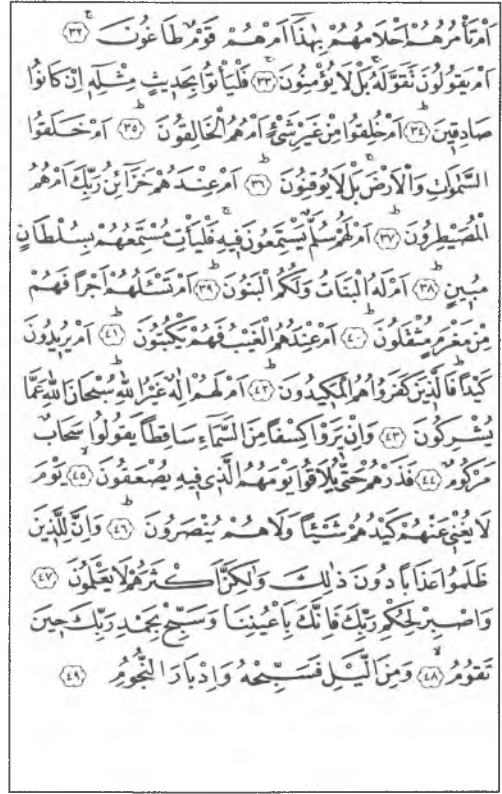 اَمْ تَأْمُرُهُمْ اَحْلَامُهُمْ بِهٰذَٓا اَمْ هُمْ قَوْمٌ طَاغُونَۚ ﴿٣٢﴾
اَمْ يَقُولُونَ تَقَوَّلَهُۚ بَلْ لَا يُؤْمِنُونَۚ ﴿٣٣﴾ فَلْيَأْتُوا بِحَدِيثٍ مِثْلِهٖٓ اِنْ كَانُوا
صَادِقِينَۜ ﴿٣٤﴾ اَمْ خُلِقُوا مِنْ غَيْرِ شَيْءٍ اَمْ هُمُ الْخَالِقُونَۜ ﴿٣٥﴾ اَمْ خَلَقُوا
السَّمٰوَاتِ وَالْاَرْضَۚ بَلْ لَا يُوقِنُونَۜ ﴿٣٦﴾ اَمْ عِنْدَهُمْ خَزَٓائِنُ رَبِّكَ اَمْ هُمُ
الْمُصَيْطِرُونَۜ ﴿٣٧﴾ اَمْ لَهُمْ سُلَّمٌ يَسْتَمِعُونَ فِيهِۚ فَلْيَأْتِ مُسْتَمِعُهُمْ بِسُلْطَانٍ
مُبِينٍۜ ﴿٣٨﴾ اَمْ لَهُ الْبَنَاتُ وَلَكُمُ الْبَنُونَۜ ﴿٣٩﴾ اَمْ تَسْـَٔلُهُمْ اَجْرًا فَهُمْ
مِنْ مَغْرَمٍ مُثْقَلُونَۜ ﴿٤٠﴾ اَمْ عِنْدَهُمُ الْغَيْبُ فَهُمْ يَكْتُبُونَۜ ﴿٤١﴾ اَمْ يُرِيدُونَ
كَيْدًاۜ فَالَّذِينَ كَفَرُوا هُمُ الْمَكِيدُونَۜ ﴿٤٢﴾ اَمْ لَهُمْ اِلٰهٌ غَيْرُ اللّٰهِۜ سُبْحَانَ اللّٰهِ عَمَّا
يُشْرِكُونَ ﴿٤٣﴾ وَاِنْ يَرَوْا كِسْفًا مِنَ السَّمَٓاءِ سَاقِطًا يَقُولُوا سَحَابٌ
مَرْكُومٌ ﴿٤٤﴾ فَذَرْهُمْ حَتّٰى يُلَاقُوا يَوْمَهُمُ الَّذِي فِيهِ يُصْعَقُونَۙ ﴿٤٥﴾ يَوْمَ
لَا يُغْنِي عَنْهُمْ كَيْدُهُمْ شَيْـًٔا وَلَا هُمْ يُنْصَرُونَۜ ﴿٤٦﴾ وَاِنَّ لِلَّذِينَ
ظَلَمُوا عَذَابًا دُونَ ذٰلِكَ وَلٰكِنَّ اَكْثَرَهُمْ لَا يَعْلَمُونَ ﴿٤٧﴾
وَاصْبِرْ لِحُكْمِ رَبِّكَ فَاِنَّكَ بِاَعْيُنِنَا وَسَبِّحْ بِحَمْدِ رَبِّكَ حِينَ
تَقُومُۙ ﴿٤٨﴾ وَمِنَ الَّيْلِ فَسَبِّحْهُ وَاِدْبَارَ النُّجُومِ ﴿٤٩﴾